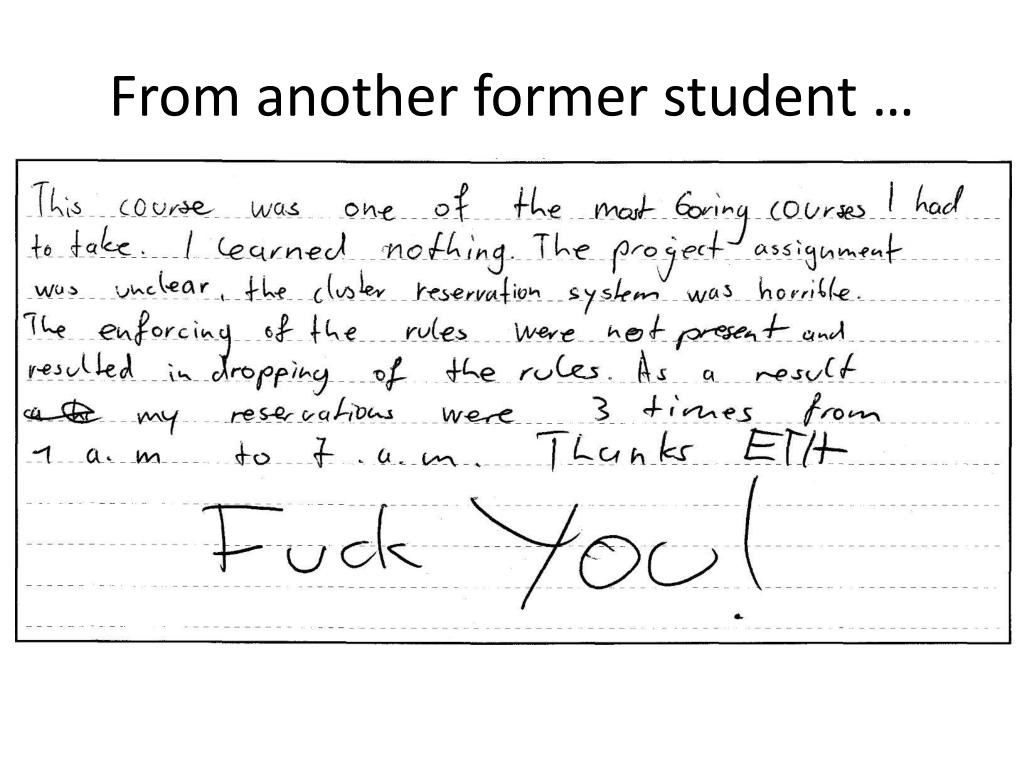 From another former student ...
This course was one of the most boring courses I had
to take. I learned nothing. The project assignment
was unclear, the cluster reservation system was horrible.
The enforcing of the rules were not present and
resulted in dropping of the rules. As a result
my reservations were 3 times from
1 a.m to 7.a.m. Thanks ETH
Fuck You!